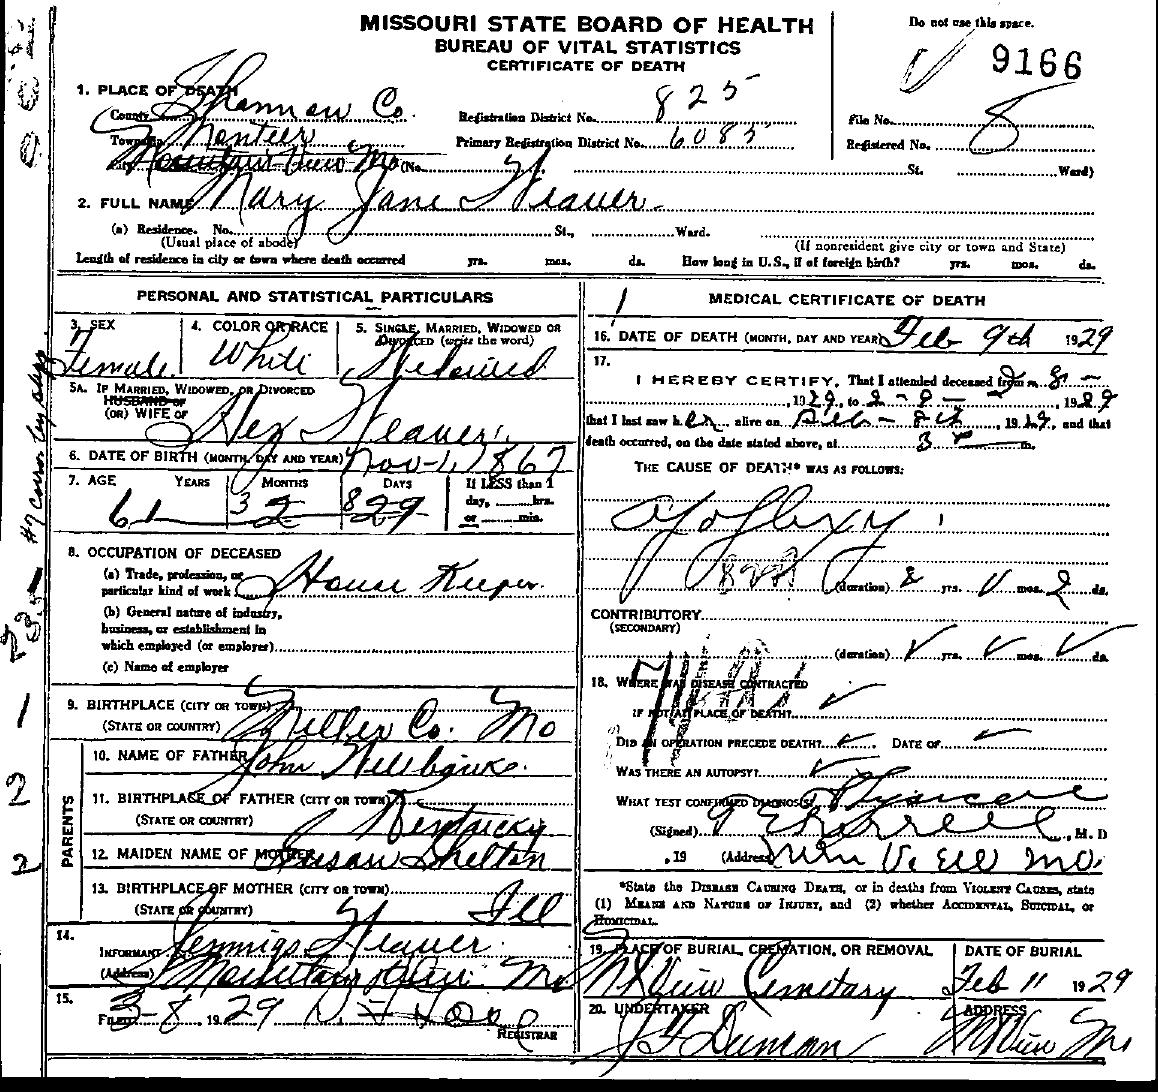 MISSOURI STATE BOARD OF HEALTH
BUREAU OF VITAL STATISTICS
CERTIFICATE OF DEATH
Do not use this space.
9166
1. PLACE OF DEATH
County Shannon Co. Registration District No. 825 File No.
Township Montier Primary Registration District No. 6085 Registered No. 8
City Mountain View Mo (No. St. Ward)
2. FULL NAME Mary Jane Weaver
(a) Residence. No. St., Ward.
(Usual place of abode) (If nonresident give city or town and State)
Length of residence in city or town where death occurred yrs. mos. ds. How long in U.S., if of foreign birth? yrs. mos. ds.
PERSONAL AND STATISTICAL PARTICULARS
3. SEX 4. COLOR OR RACE 5. SINGLE, MARRIED, WIDOWED OR DIVORCED (write the word)
Female White Widowed
5A. IF MARRIED, WIDOWED, OR DIVORCED
HUSBAND OF
(OR) WIFE OF Hez Weaver
6. DATE OF BIRTH (MONTH, DAY AND YEAR) Nov-1, 1867
7. AGE YEARS MONTHS DAYS If LESS than 1
day, hrs.
or min.
61 3 2 8 29
8. OCCUPATION OF DECEASED
(a) Trade, profession, or
particular kind of work House Keeper
(b) General nature of industry,
business, or establishment in
which employed (or employer)
(c) Name of employer
9. BIRTHPLACE (CITY OR TOWN)
(STATE OR COUNTRY) Miller Co. Mo
PARENTS
10. NAME OF FATHER John Wilbanks
11. BIRTHPLACE OF FATHER (CITY OR TOWN)
(STATE OR COUNTRY) Kentucky
12. MAIDEN NAME OF MOTHER Susan Shelton
13. BIRTHPLACE OF MOTHER (CITY OR TOWN)
(STATE OR COUNTRY) Ill
14.
INFORMANT Jennigs Weaver
(Address) Mountain View Mo
15.
FILED 3-8, 1929
REGISTRAR
MEDICAL CERTIFICATE OF DEATH
16. DATE OF DEATH (MONTH, DAY AND YEAR) Feb 9th 1929
17.
I HEREBY CERTIFY, That I attended deceased from 2-8-
, 1929, to 2-9-, 1929
that I last saw her alive on Feb-8th, 1929, and that
death occurred, on the date stated above, at 3 m.
THE CAUSE OF DEATH* WAS AS FOLLOWS:
Apoplexy
(duration) yrs. mos. 2 ds.
CONTRIBUTORY
(SECONDARY)
(duration) yrs. mos. ds.
18. WHERE WAS DISEASE CONTRACTED
IF NOT AT PLACE OF DEATH?
DID AN OPERATION PRECEDE DEATH? DATE OF
WAS THERE AN AUTOPSY?
WHAT TEST CONFIRMED DIAGNOSIS? Physical
(Signed) , M. D
, 19 (Address) Mo.
*State the DISEASE CAUSING DEATH, or in deaths from VIOLENT CAUSES, state
(1) MEANS AND NATURE OF INJURY, and (2) whether ACCIDENTAL, SUICIDAL, or
HOMICIDAL.
19. PLACE OF BURIAL, CREMATION, OR REMOVAL DATE OF BURIAL
Mt View Cemetary Feb 11 1929
20. UNDERTAKER ADDRESS
J F Duncan Mt View Mo